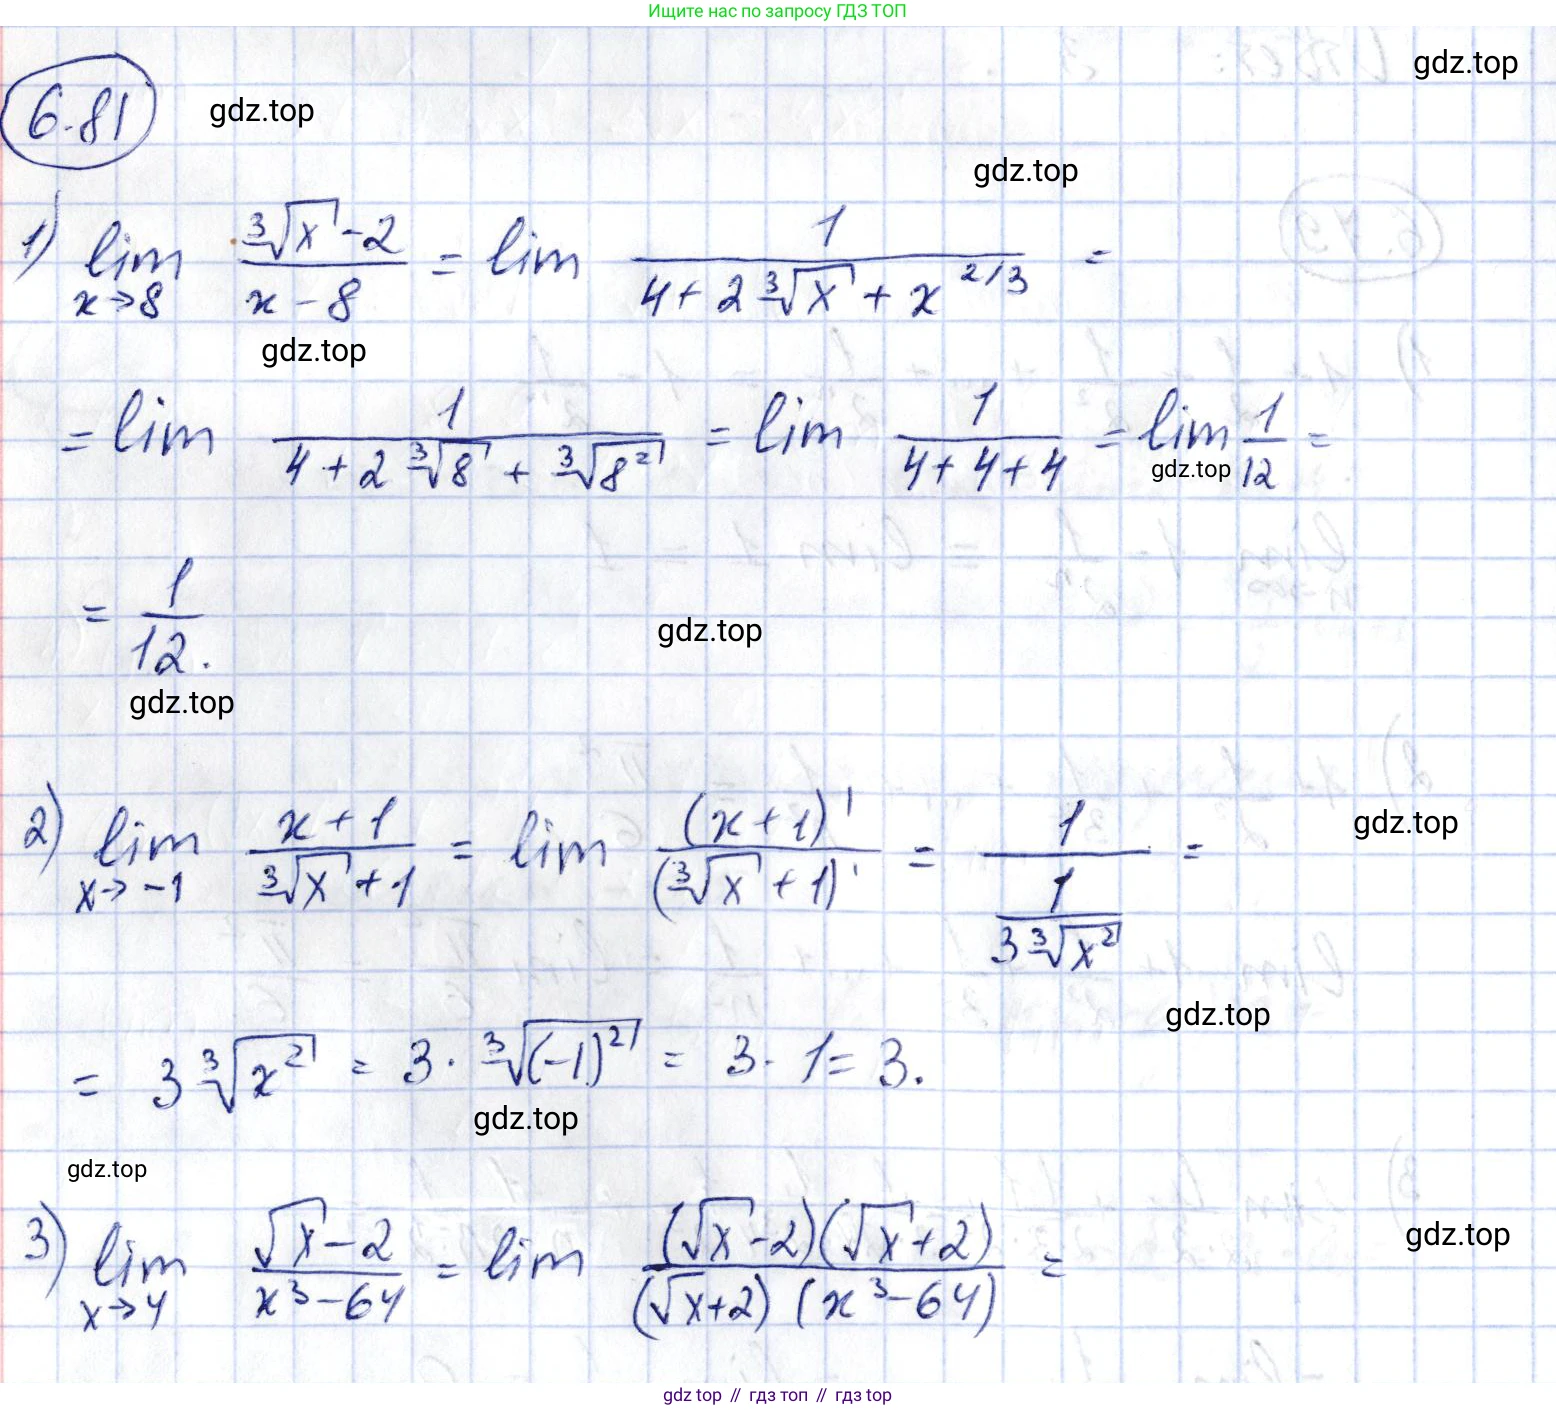 Ищите нас по запросу ГДЗ ТОП
gdz.top
6.81
gdz.top
gdz.top
1) lim x→8 (∛x - 2)/(x - 8) = lim 1/(4 + 2∛x + x^(2/3)) =
gdz.top
= lim 1/(4 + 2∛8 + ∛8²) = lim 1/(4 + 4 + 4) = lim 1/12 =
gdz.top
= 1/12.
gdz.top
gdz.top
2) lim x→-1 (x + 1)/(∛x + 1) = lim (x + 1)'/(∛x + 1)' = 1/(1/(3∛x²)) =
gdz.top
gdz.top
= 3∛x² = 3 · ∛(-1)² = 3 · 1 = 3.
gdz.top
gdz.top
3) lim x→4 (√x - 2)/(x³ - 64) = lim (√x - 2)(√x + 2)/(√x + 2)(x³ - 64) =
gdz.top
gdz top // гдз топ // гдз top